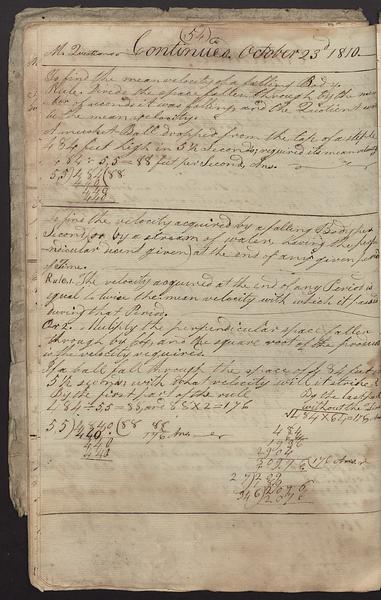 (54)
M. Questions Continued October 23d 1810.
To find the mean velocity of a falling Body.
Rule. Divide the space fallen through by the num
ber of seconds it was falling and the Quotient will
be the mean velocity.
A musket Ball dropped from the top of a steeple
484 feet high in 5½ Seconds required its mean velocity
484 ÷ 5,5 = 88 feet per Second, Ans.
55)4840(88
440
440
440
To find the velocity acquired by a falling Body per
Second, or by a stream of water, having the perpe
ndicular decent given, at the end of any given period
of Time.
Rule 1. The velocity acquired at the end of any Period is
equal to twice the mean velocity with which it passed
during that Period.
Or 2. Multiply the perpendicular space fallen
through by 64, and the square root of the product
is the velocity required.
If a ball fall through the space of 484 feet in
5½ seconds, with what velocity will it strike
By the first part of the rule
By the last part
484 ÷ 5,5 = 88, and 88 X 2 = 176
without the
√484 X 64 = 176 An
55)4840(88 88
440 176 Answer
440
440
484
64
1936
2904
30976(176 Answer
27)209
346)2076
2076